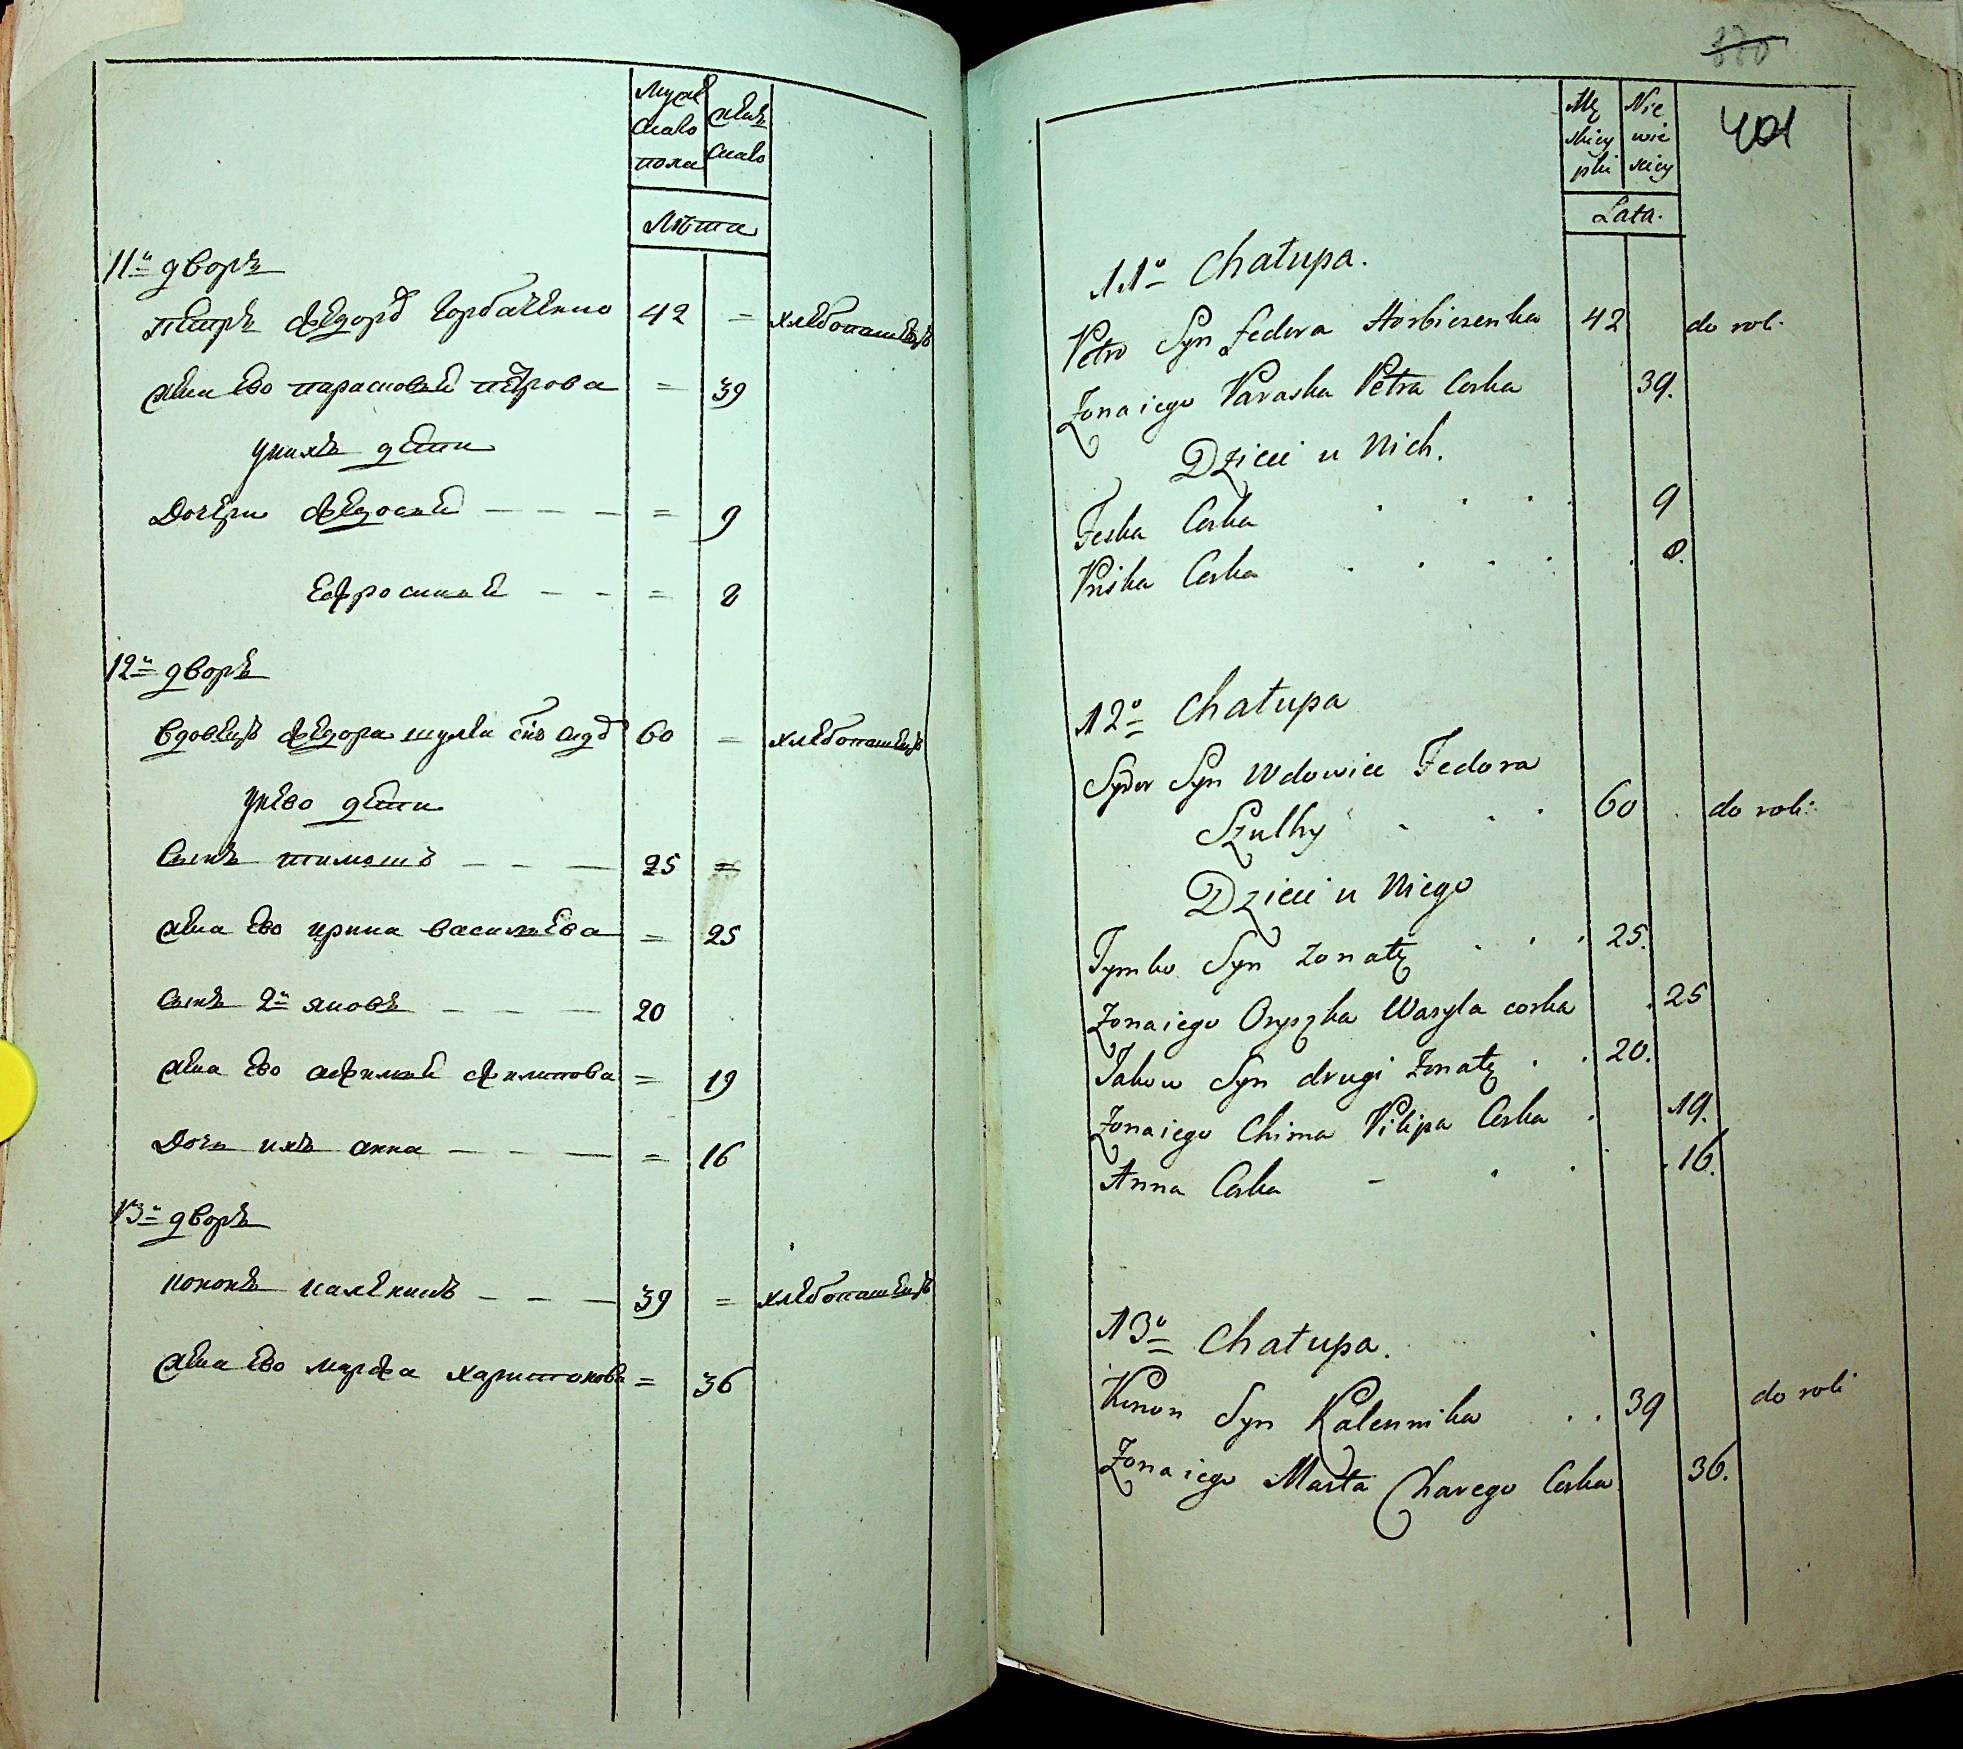 Муже
скаго
пола
женъ
скаго
Лѣта
11й дворъ
Петръ Федоръ Горбаченко 42 = хлебопашецъ
жена ево парасковей петрова = 39
уних дети
Дочери Федосей — — — = 9
Ефросиней — — = 8
12й дворъ
вдовецъ Федора шулки снъ сидъ 60 = хлебопашецъ
унево дети
Сынъ тимошъ — — — 25 =
жена ево ирина василева = 25
Сынъ 2й яковъ — — — 20
жена ево афимей филипова = 19
Дочь ихъ анна — — — = 16
13й дворъ
кононъ каленикъ — — — 39 = хлебопашецъ
жена ево марфа харитонова = 36
380
401
Mę
skiey
płci
Nie
wie
sciey
Lata.
11o Chałupa.
Petro Syn Fedora Horbiczenka 42 do roli.
Żona iego Paraska Petra Corka 39.
Dzieci u Nich.
Feska Corka . . . . 9
Priska Corka . . . . . 8.
12o Chałupa
Sydor Syn Wdowiec Fedora
Szulhy . . . 60 . do roli:
Dzieci u Niego
Tymko Syn żonaty . . . 25.
Żona iego Oryszka Wasyla corka . 25
Jakow Syn drugi żonaty . . 20.
Żona iego Chima Pilipa Corka . 19.
Anna Corka - . . . . 16.
13o Chałupa.
Konon Syn Kalennika . . 39 do roli
Żona iego Marta Charego Corka 36.